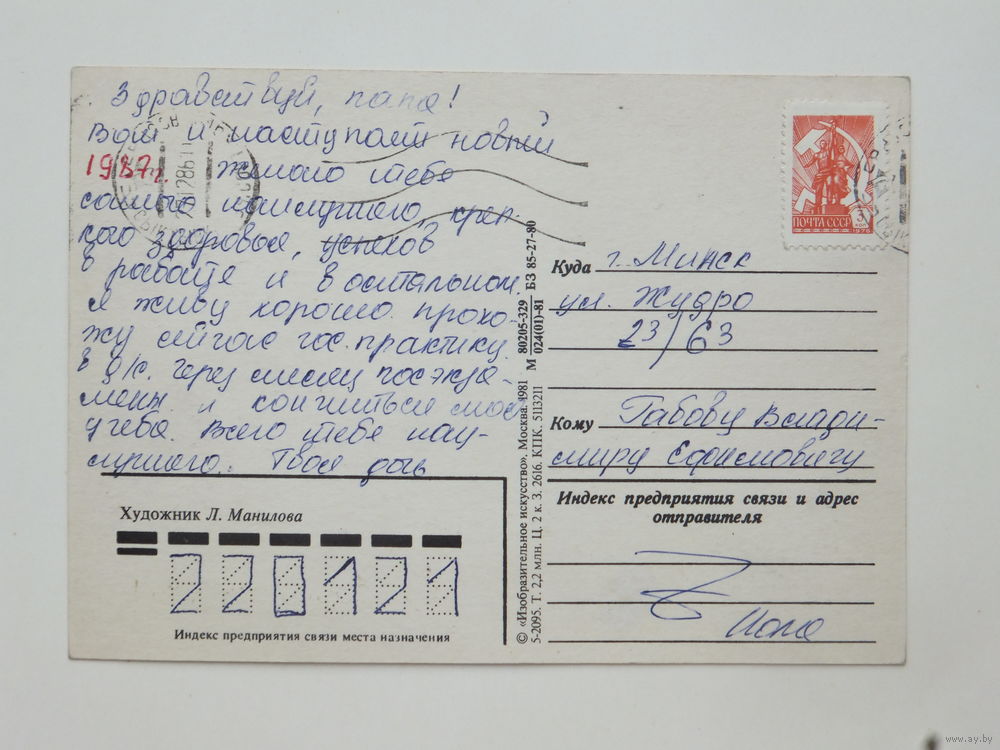 Здравствуй, папа!
Вот и наступает новый
1987г. Желаю тебе
самого наилучшего, креп-
кого здоровья, успехов
в работе и в остальном
Я живу хорошо. прохо-
жу сейчас гос. практику
в д/с. через месяц госэкза-
мены и кончиться моя
учеба. Всего тебе наи-
лучшего. Твоя дочь
ПОЧТА СССР
1976
Куда г. Минск
ул. Жудро
23/63
Кому Габову Влади-
миру Ефимовичу
Индекс предприятия связи и адрес
отправителя
М 80205-329 БЗ 85-27-80
024(01)-81
© «Изобразительное искусство». Москва. 1981
5-2095. Т. 2,2 млн. Ц. 2 к. З. 2616. КПК. 5113211
Художник Л. Манилова
220121
Индекс предприятия связи места назначения
www.ay.by